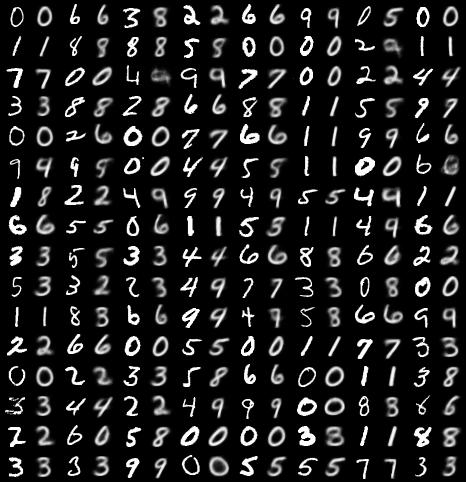 0 0 6 6 3 8 2 2 6 6 9 9 0 5 0 0
1 1 8 8 8 8 5 8 0 0 0 0 2 9 1 1
7 7 0 0 4 9 9 7 7 0 0 2 2 4 4
3 3 8 8 2 8 6 6 8 8 1 1 5 5 9 7
0 0 2 6 0 0 7 7 6 6 1 1 9 9 6 6
9 4 9 5 0 0 4 4 5 5 1 1 0 0 6
1 8 2 2 4 9 9 9 4 9 5 5 4 9 1 1
6 6 5 5 0 6 1 1 5 3 1 1 4 9 6 6
3 3 5 5 3 3 4 4 6 6 8 8 6 6 2 2
5 3 3 2 2 3 4 9 7 7 3 3 0 8 0 0
1 1 8 3 6 6 9 9 4 9 5 8 6 6 9 9
2 2 6 6 0 0 5 5 0 0 1 1 9 7 3 3
0 0 2 2 3 3 5 8 6 6 0 0 1 1 3 8
3 3 4 4 2 2 4 9 9 9 0 0 8 3 8 6
2 2 6 0 5 8 0 0 0 0 3 3 1 1 8 8
3 3 3 3 9 9 0 0 5 5 5 5 7 7 3 3